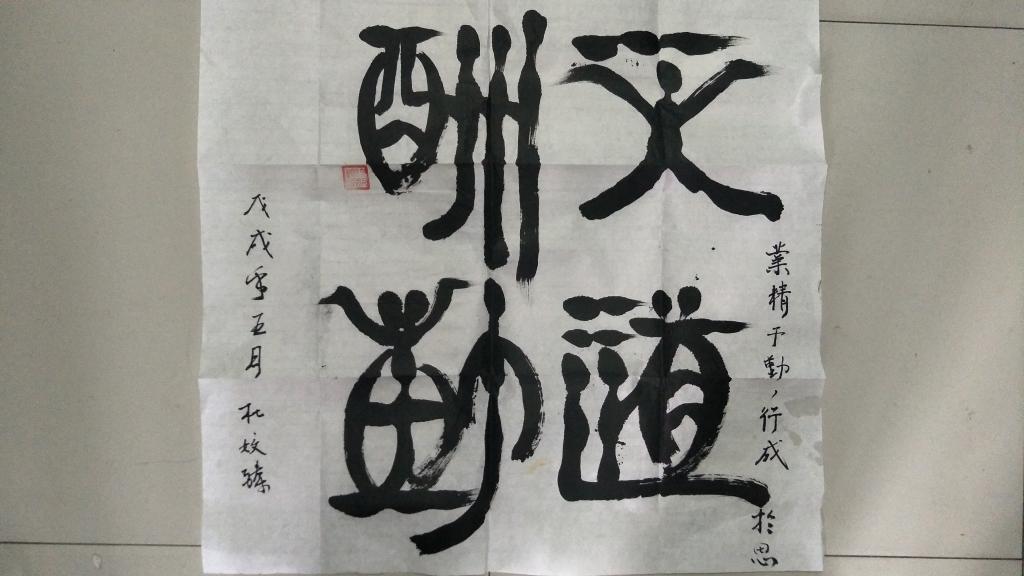 業精于勤,行成於思
天道
酬勤
戊戌年五月 杜姣